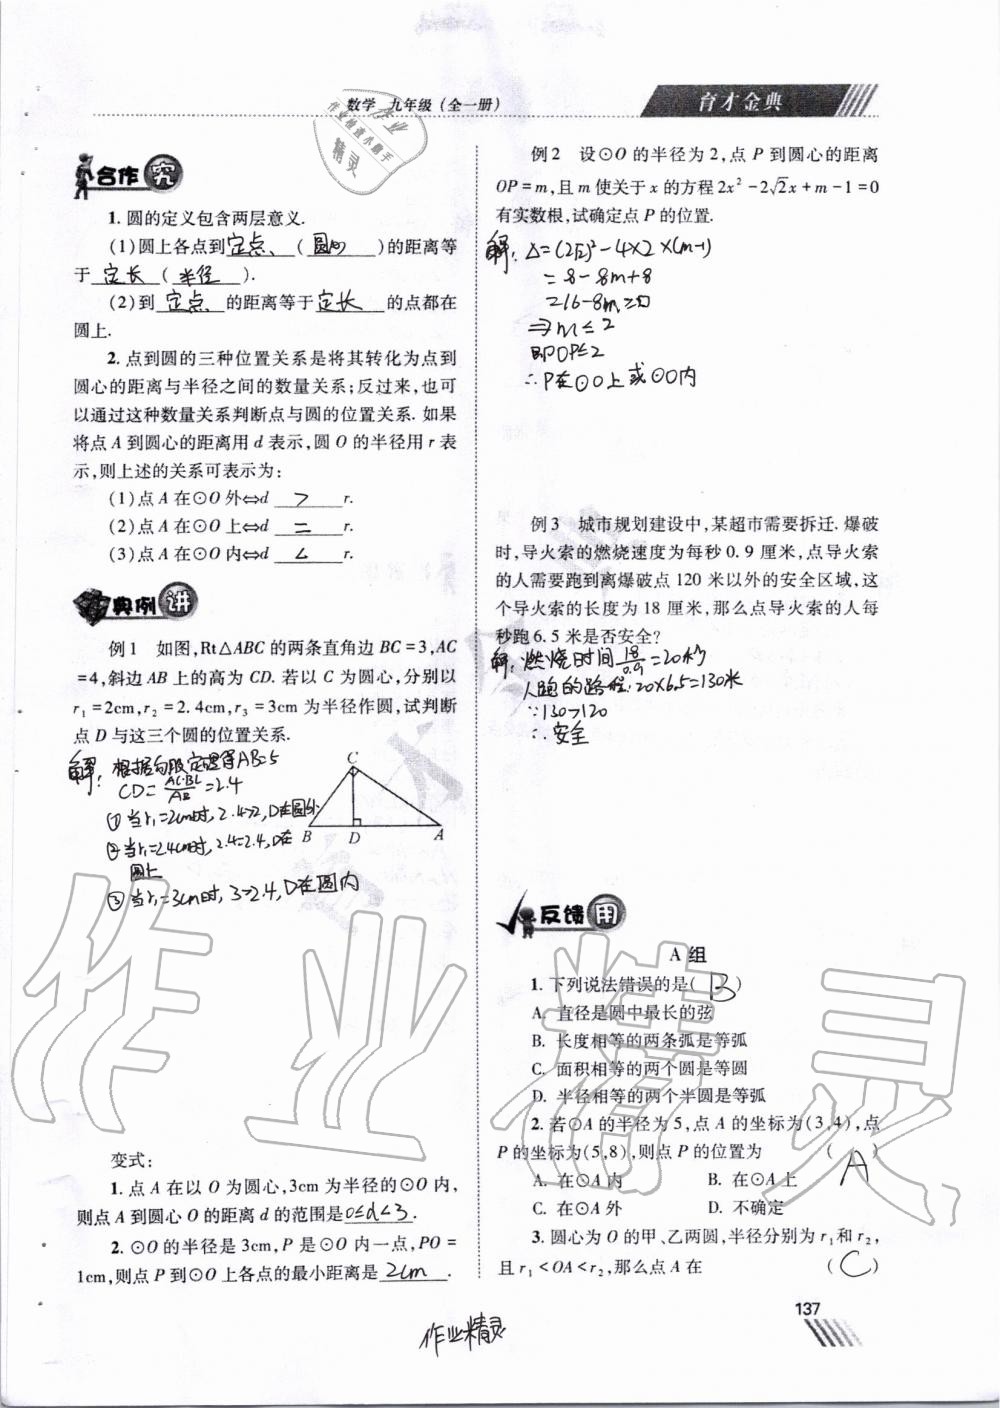 数学 九年级(全一册)
育才金典
作业
作业检查小助手
精灵
合作 究
1. 圆的定义包含两层意义.
(1)圆上各点到定点、(圆心)的距离等
于定长(半径).
(2)到定点的距离等于定长的点都在
圆上.
2. 点到圆的三种位置关系是将其转化为点到
圆心的距离与半径之间的数量关系;反过来,也可
以通过这种数量关系判断点与圆的位置关系. 如果
将点 A 到圆心的距离用 d 表示,圆 O 的半径用 r 表
示,则上述的关系可表示为:
(1)点 A 在⊙O 外⇔d > r.
(2)点 A 在⊙O 上⇔d = r.
(3)点 A 在⊙O 内⇔d < r.
典例 讲
例1 如图,Rt△ABC 的两条直角边 BC=3,AC
=4,斜边 AB 上的高为 CD. 若以 C 为圆心,分别以
r₁=2cm,r₂=2.4cm,r₃=3cm 为半径作圆,试判断
点 D 与这三个圆的位置关系.
解:根据勾股定理得AB=5
CD=AC·BC/AB=2.4
①当r₁=2cm时,2.4>2,D在圆外
②当r₂=2.4cm时,2.4=2.4,D在
圆上
③当r₃=3cm时,3>2.4,D在圆内
C
B D A
变式:
1. 点 A 在以 O 为圆心,3cm 为半径的⊙O 内,
则点 A 到圆心 O 的距离 d 的范围是0≤d<3.
2. ⊙O 的半径是 3cm,P 是⊙O 内一点,PO=
1cm,则点 P 到⊙O 上各点的最小距离是2cm.
例2 设⊙O 的半径为 2,点 P 到圆心的距离
OP=m,且 m 使关于 x 的方程 2x²-2√2x+m-1=0
有实数根,试确定点 P 的位置.
解:△=(2√2)²-4×2×(m-1)
=8-8m+8
=16-8m≥0
⇒m≤2
即OP≤2
∴P在⊙O上或⊙O内
例3 城市规划建设中,某超市需要拆迁. 爆破
时,导火索的燃烧速度为每秒 0.9 厘米,点导火索
的人需要跑到离爆破点 120 米以外的安全区域,这
个导火索的长度为 18 厘米,那么点导火索的人每
秒跑 6.5 米是否安全?
解:燃烧时间18/0.9=20秒
人跑的路程:20×6.5=130米
∵130>120
∴安全
反馈 用
A 组
1. 下列说法错误的是(B)
A. 直径是圆中最长的弦
B. 长度相等的两条弧是等弧
C. 面积相等的两个圆是等圆
D. 半径相等的两个半圆是等弧
2. 若⊙A 的半径为 5,点 A 的坐标为(3,4),点
P 的坐标为(5,8),则点 P 的位置为 (A)
A. 在⊙A 内 B. 在⊙A 上
C. 在⊙A 外 D. 不确定
3. 圆心为 O 的甲、乙两圆,半径分别为 r₁和 r₂,
且 r₁<OA<r₂,那么点 A 在 (C)
作业精灵
137
作业精灵